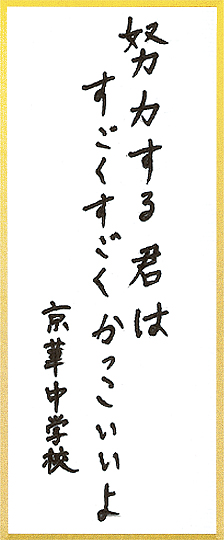 努力する君は
すごくすごくかっこいいよ
京華中学校